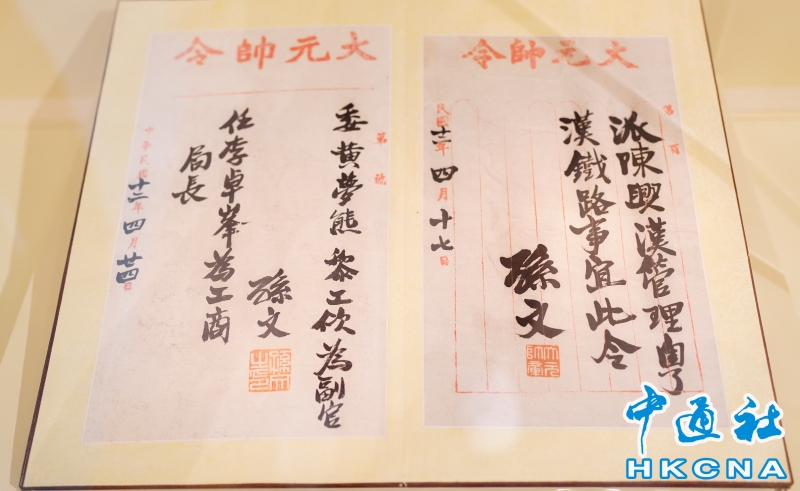 大元帥令
第 頁
派陳興漢管理粵
漢鐵路事宜此令
孫文
民國十二年四月十七日
大元帥令
第 號
委黃夢熊黎工佽為副官
任李卓峯為工商
局長
孫文
孫文之印
中華民國十二年四月廿四日
中通社
HKCNA